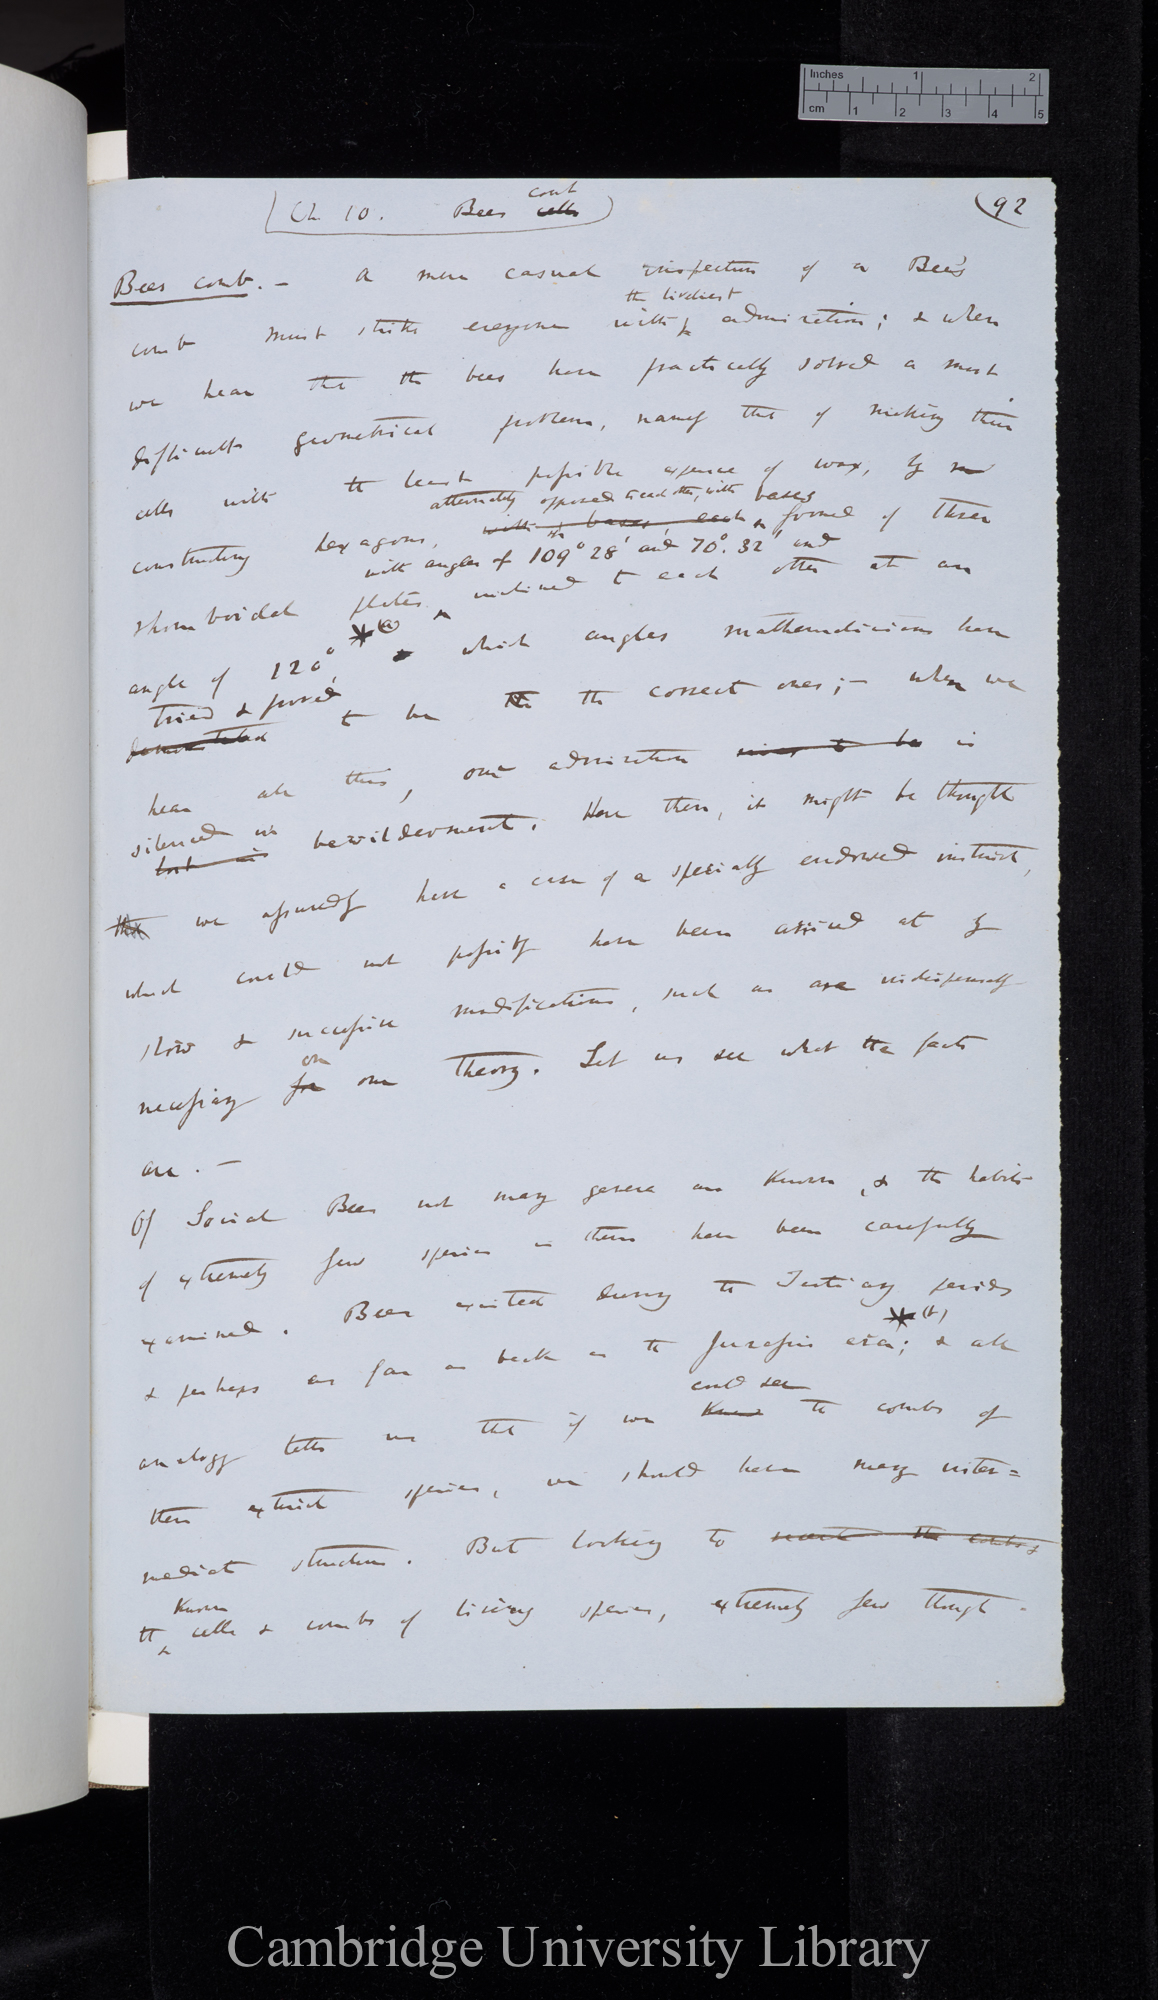 Inches 1 2
cm 1 2 3 4 5
Ch 10. Bees cells comb
92
Bees comb. — A mere casual inspection of a Bee's
comb must strike everyone with the liveliest admiration; & when
we hear that the bees have practically solved a most
difficult geometrical problem, namely that of making their
cells with the least possible expence of wax, by
constructing hexagons, alternately opposed to each other, with bases formed of three
with angles of 109° 28′ and 70°. 32′ and
rhomboidal plates inclined to each other at an
angle of 120° *(a) which angles mathematicians have
tried & proved
demonstrated to be the the correct ones; — when we
hear all this, our admiration is
silenced in
lost in bewilderment. Here then, it might be thought
we assuredly have a case of a specially endowed instinct,
which could not possibly have been arrived at by
slow & successive modifications, such as are indispensably
necessary for on our theory. Let us see what the facts
are. —
Of Social Bees not many genera are known, & the habits
of extremely few species in them have been carefully
examined. Bees existed during the Tertiary periods
*(b)
& perhaps as far as back as the Jurassic area; & all
could see
analogy tells us that if we knew the combs of
these extinct species, we should have many inter=
mediate structures. But looking to the combs &
known
the cells & combs of living species, extremely few though
Cambridge University Library